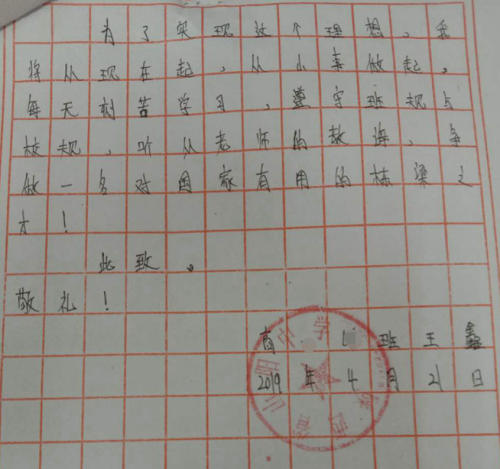 为了实现这个理想，我
将从现在起，从小事做起，
每天刻苦学习，遵守班规与
校规，听从老师的教诲，争
做一名对国家有用的栋梁之
才！
此致。
敬礼！
班王鑫
2019年4月21日